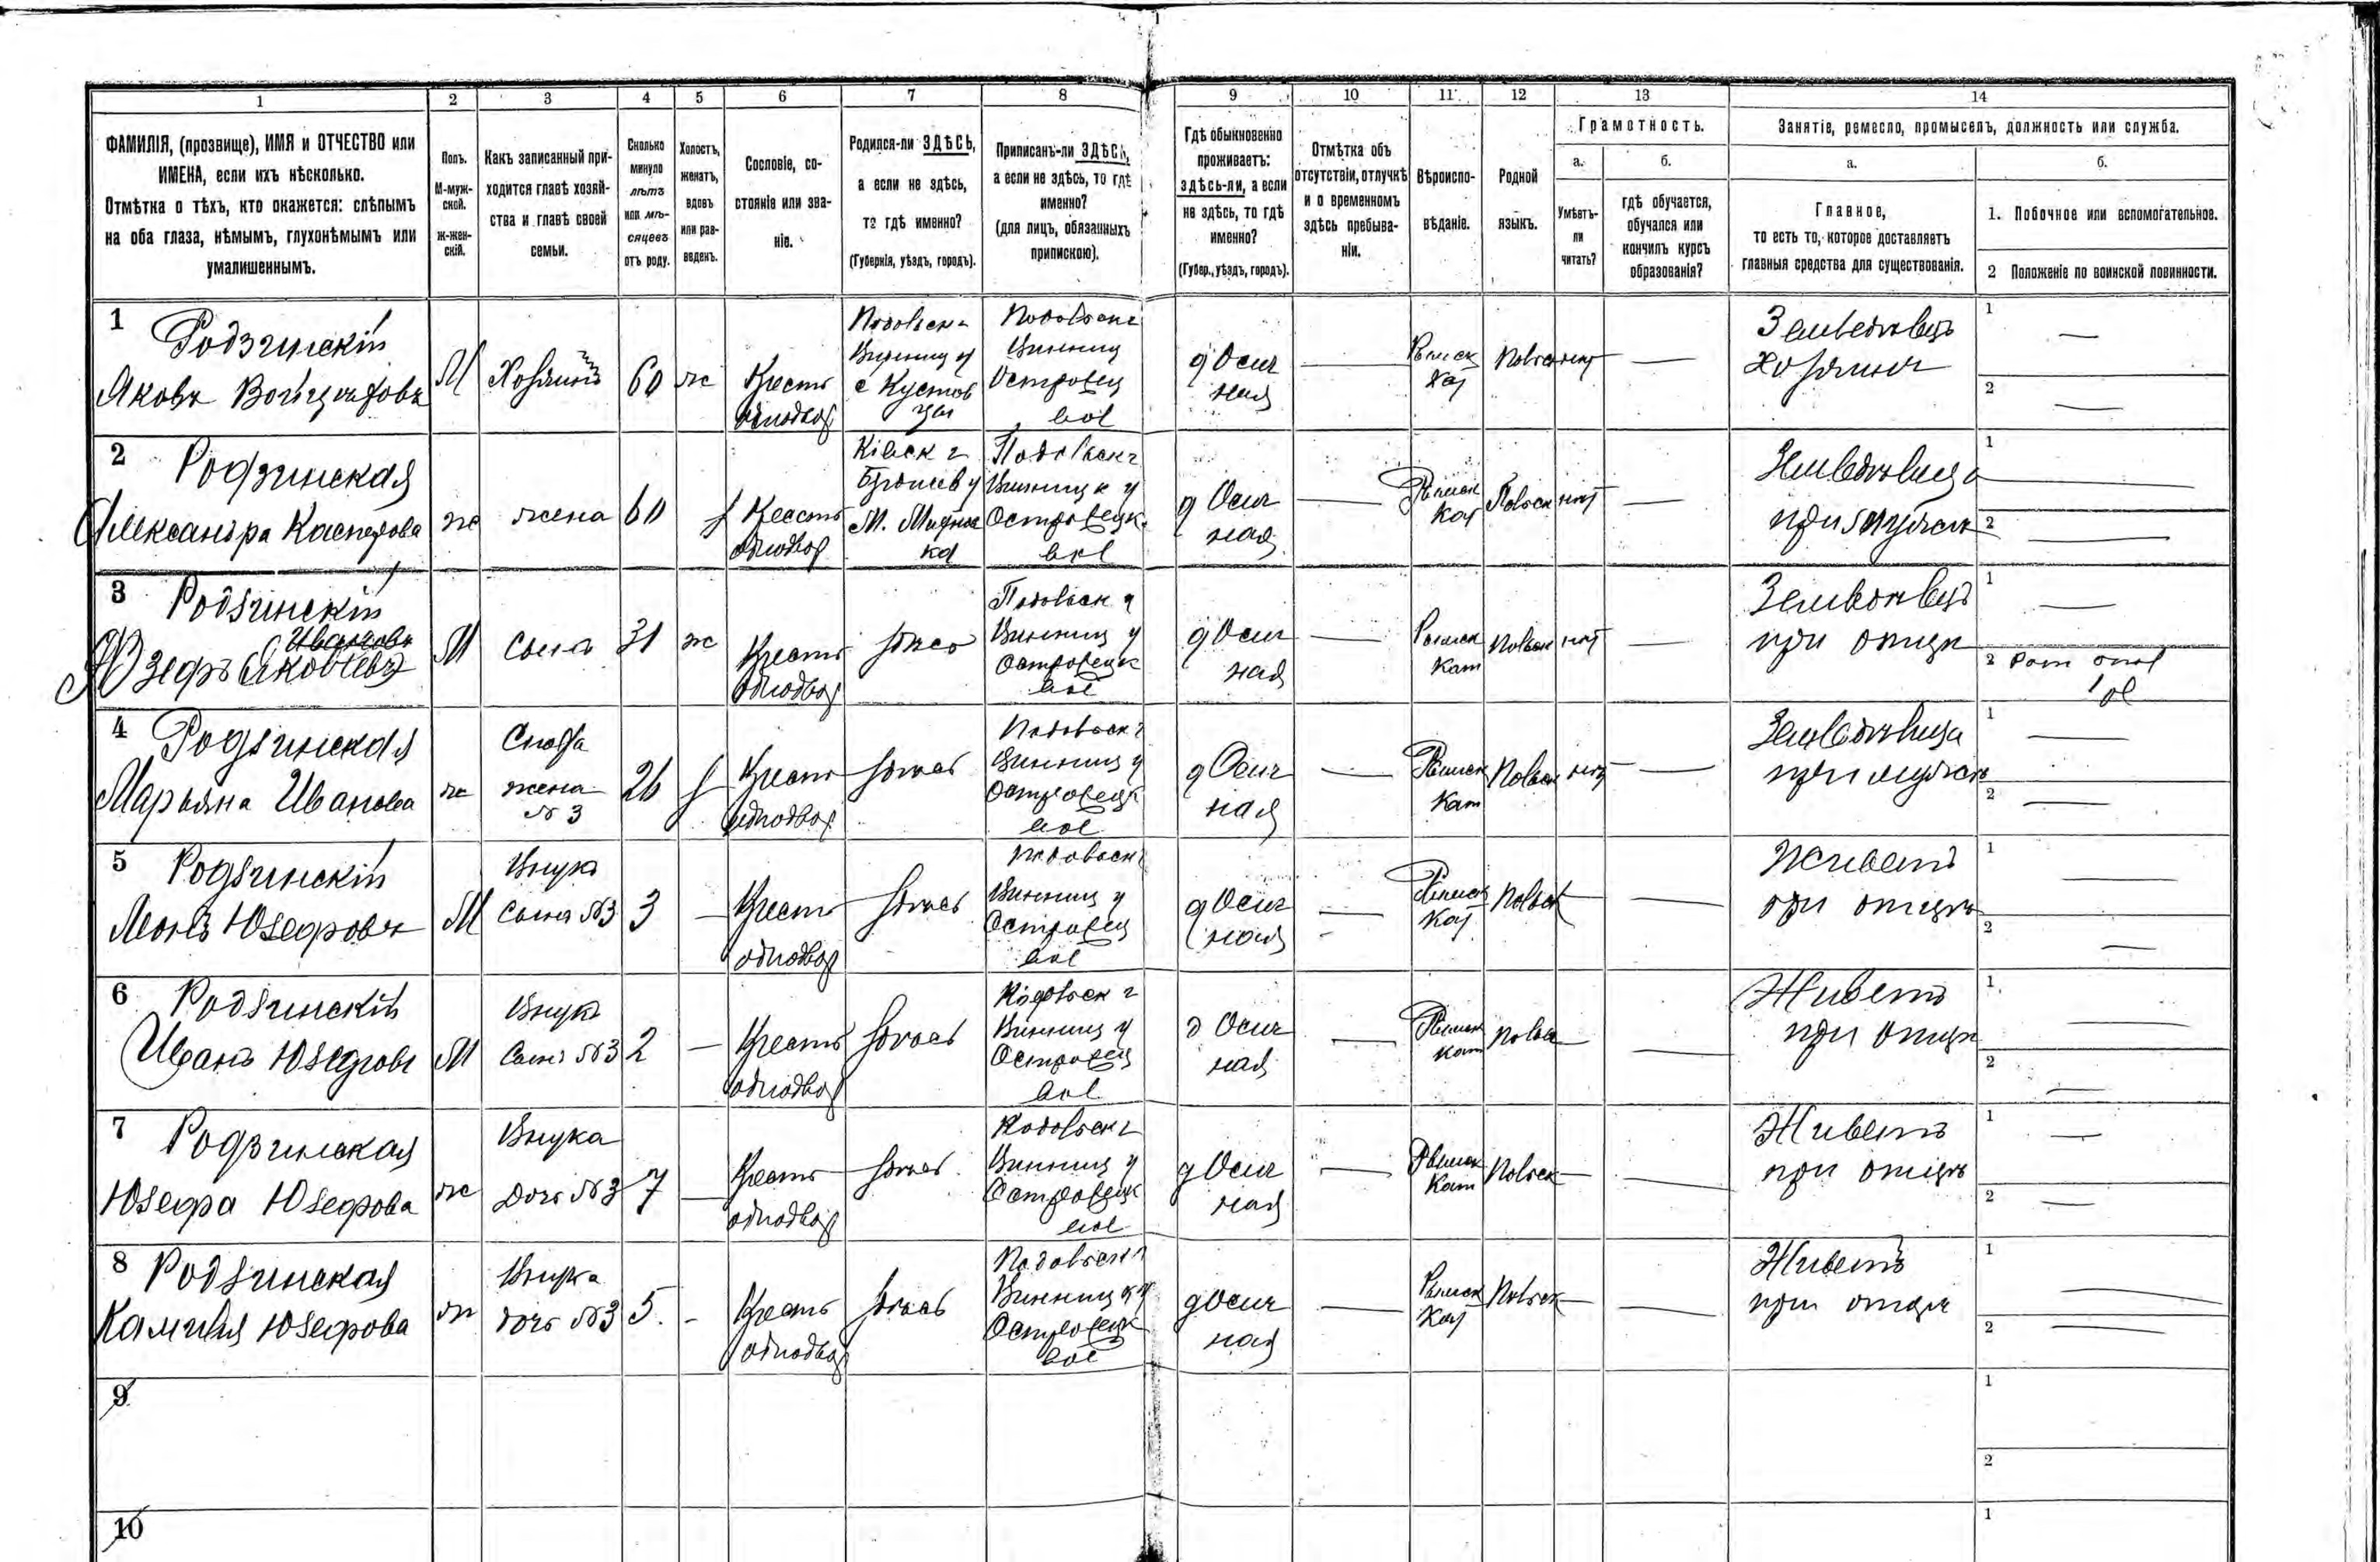 1 2 3 4 5 6 7 8 9 10 11 12 13 14
ФАМИЛІЯ, (прозвище), ИМЯ и ОТЧЕСТВО или
ИМЕНА, если ихъ нѣсколько.
Отмѣтка о тѣхъ, кто окажется: слѣпымъ
на оба глаза, нѣмымъ, глухонѣмымъ или
умалишеннымъ.
Полъ.
М-муж-
ской.
ж-жен-
скій.
Какъ записанный при-
ходится главѣ хозяй-
ства и главѣ своей
семьи.
Сколько
минуло
лѣтъ
или мѣ-
сяцевъ
отъ роду.
Холостъ,
женатъ,
вдовъ
или раз-
веденъ.
Сословіе, со-
стояніе или зва-
ніе.
Родился-ли ЗДѢСЬ,
а если не здѣсь,
то гдѣ именно?
(Губернія, уѣздъ, городъ).
Приписанъ-ли ЗДѢСЬ,
а если не здѣсь, то гдѣ
именно?
(для лицъ, обязанныхъ
припискою).
Гдѣ обыкновенно
проживаетъ:
здѣсь-ли, а если
не здѣсь, то гдѣ
именно?
(Губер., уѣздъ, городъ).
Отмѣтка объ
отсутствіи, отлучкѣ
и о временномъ
здѣсь пребыва-
ніи.
Вѣроиспо-
вѣданіе.
Родной
языкъ.
Грамотность.
а.
Умѣетъ-
ли
читать?
б.
гдѣ обучается,
обучался или
кончилъ курсъ
образованія?
Занятіе, ремесло, промыселъ, должность или служба.
а.
Главное,
то есть то, которое доставляетъ
главныя средства для существованія.
б.
1. Побочное или вспомогательное.
2 Положеніе по воинской повинности.
1 Родзинскій
Яковъ Войцеховъ
М
Хозяинъ
60
ж
Крест
однодвор
Подольск г
Винниц у
с Кустов
цы
Подольск г
Винниц
Островец
вол
д Осич
ная
Римск
Кат
Польск
нет
Земледелец
хозяинъ
1
2
2 Родзинская
Александра Касперова
ж
жена
60
з
Крест
однодвор
Кіевск г
Подольск г
Винницк у
Островецк
вол
д Осич
ная
Римск
Кат
Польск
нет
при мужѣ
1
2
3 Родзинскій
Ивановъ
Юзефъ Яковлевъ
М
Сынъ
31
ж
Крест
однодвор
здесь
Подольск г
Винниц у
Островецк
вол
д Осич
ная
Римск
Кат
Польск
нет
Земледелец
при отцѣ
1
2
4 Родзинская
Марьяна Иванова
ж
Сноха
жена
№ 3
26
з
Крест
однодвор
здесь
Подольск г
Винниц у
Островецк
вол
д Осич
ная
Римск
Кат
Польск
нет
при мужѣ
1
2
5 Родзинскій
Леонъ Юзефовъ
М
Внукъ
Сынъ №3
3
Крест
однодвор
здесь
Подольск г
Винниц у
Островец
вол
д Осич
ная
Римск
Кат
Польск
Живетъ
при отцѣ
1
2
6 Родзинскій
Иванъ Юзефовъ
М
Внукъ
Сынъ №3
2
Крест
однодвор
здесь
Подольск г
Винниц у
Островец
вол
д Осич
ная
Римск
Кат
Польск
Живетъ
при отцѣ
1
2
7 Родзинская
Юзефа Юзефова
ж
Внука
Дочь №3
7
Крест
однодвор
здесь
Подольск г
Винниц у
Островецк
вол
д Осич
ная
Римск
Кат
Польск
Живетъ
при отцѣ
1
2
8 Родзинская
Камилія Юзефова
ж
Внука
дочь №3
5.
Крест
однодвор
здесь
Подольск г
Винницк у
Островецк
вол
д Осич
ная
Римск
Кат
Польск
Живетъ
при отцѣ
1
2
9
1
2
10
1